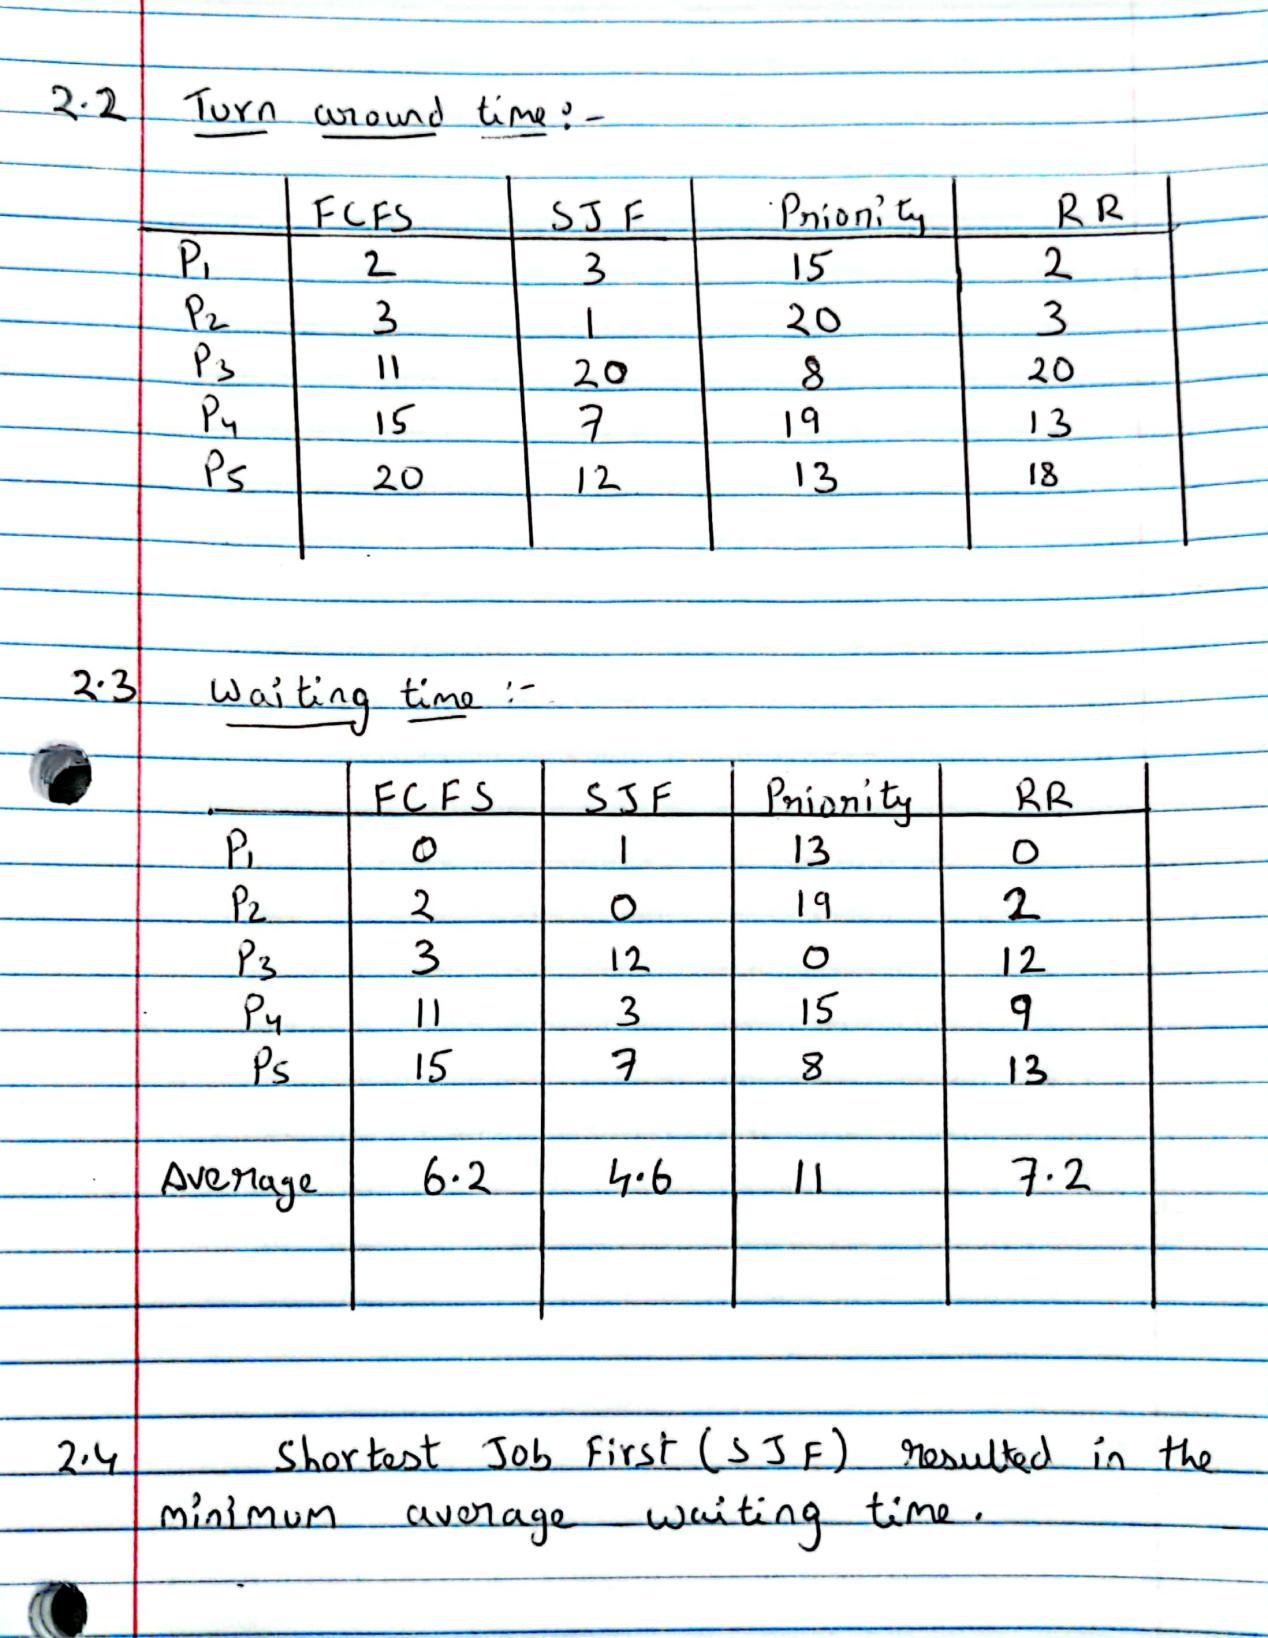 2.2 Turn around time :-
FCFS SJF Priority RR
P1 2 3 15 2
P2 3 1 20 3
P3 11 20 8 20
P4 15 7 19 13
P5 20 12 13 18
2.3 Waiting time :-
FCFS SJF Priority RR
P1 0 1 13 0
P2 2 0 19 2
P3 3 12 0 12
P4 11 3 15 9
P5 15 7 8 13
Average 6.2 4.6 11 7.2
2.4 Shortest Job First (SJF) resulted in the
minimum average waiting time.